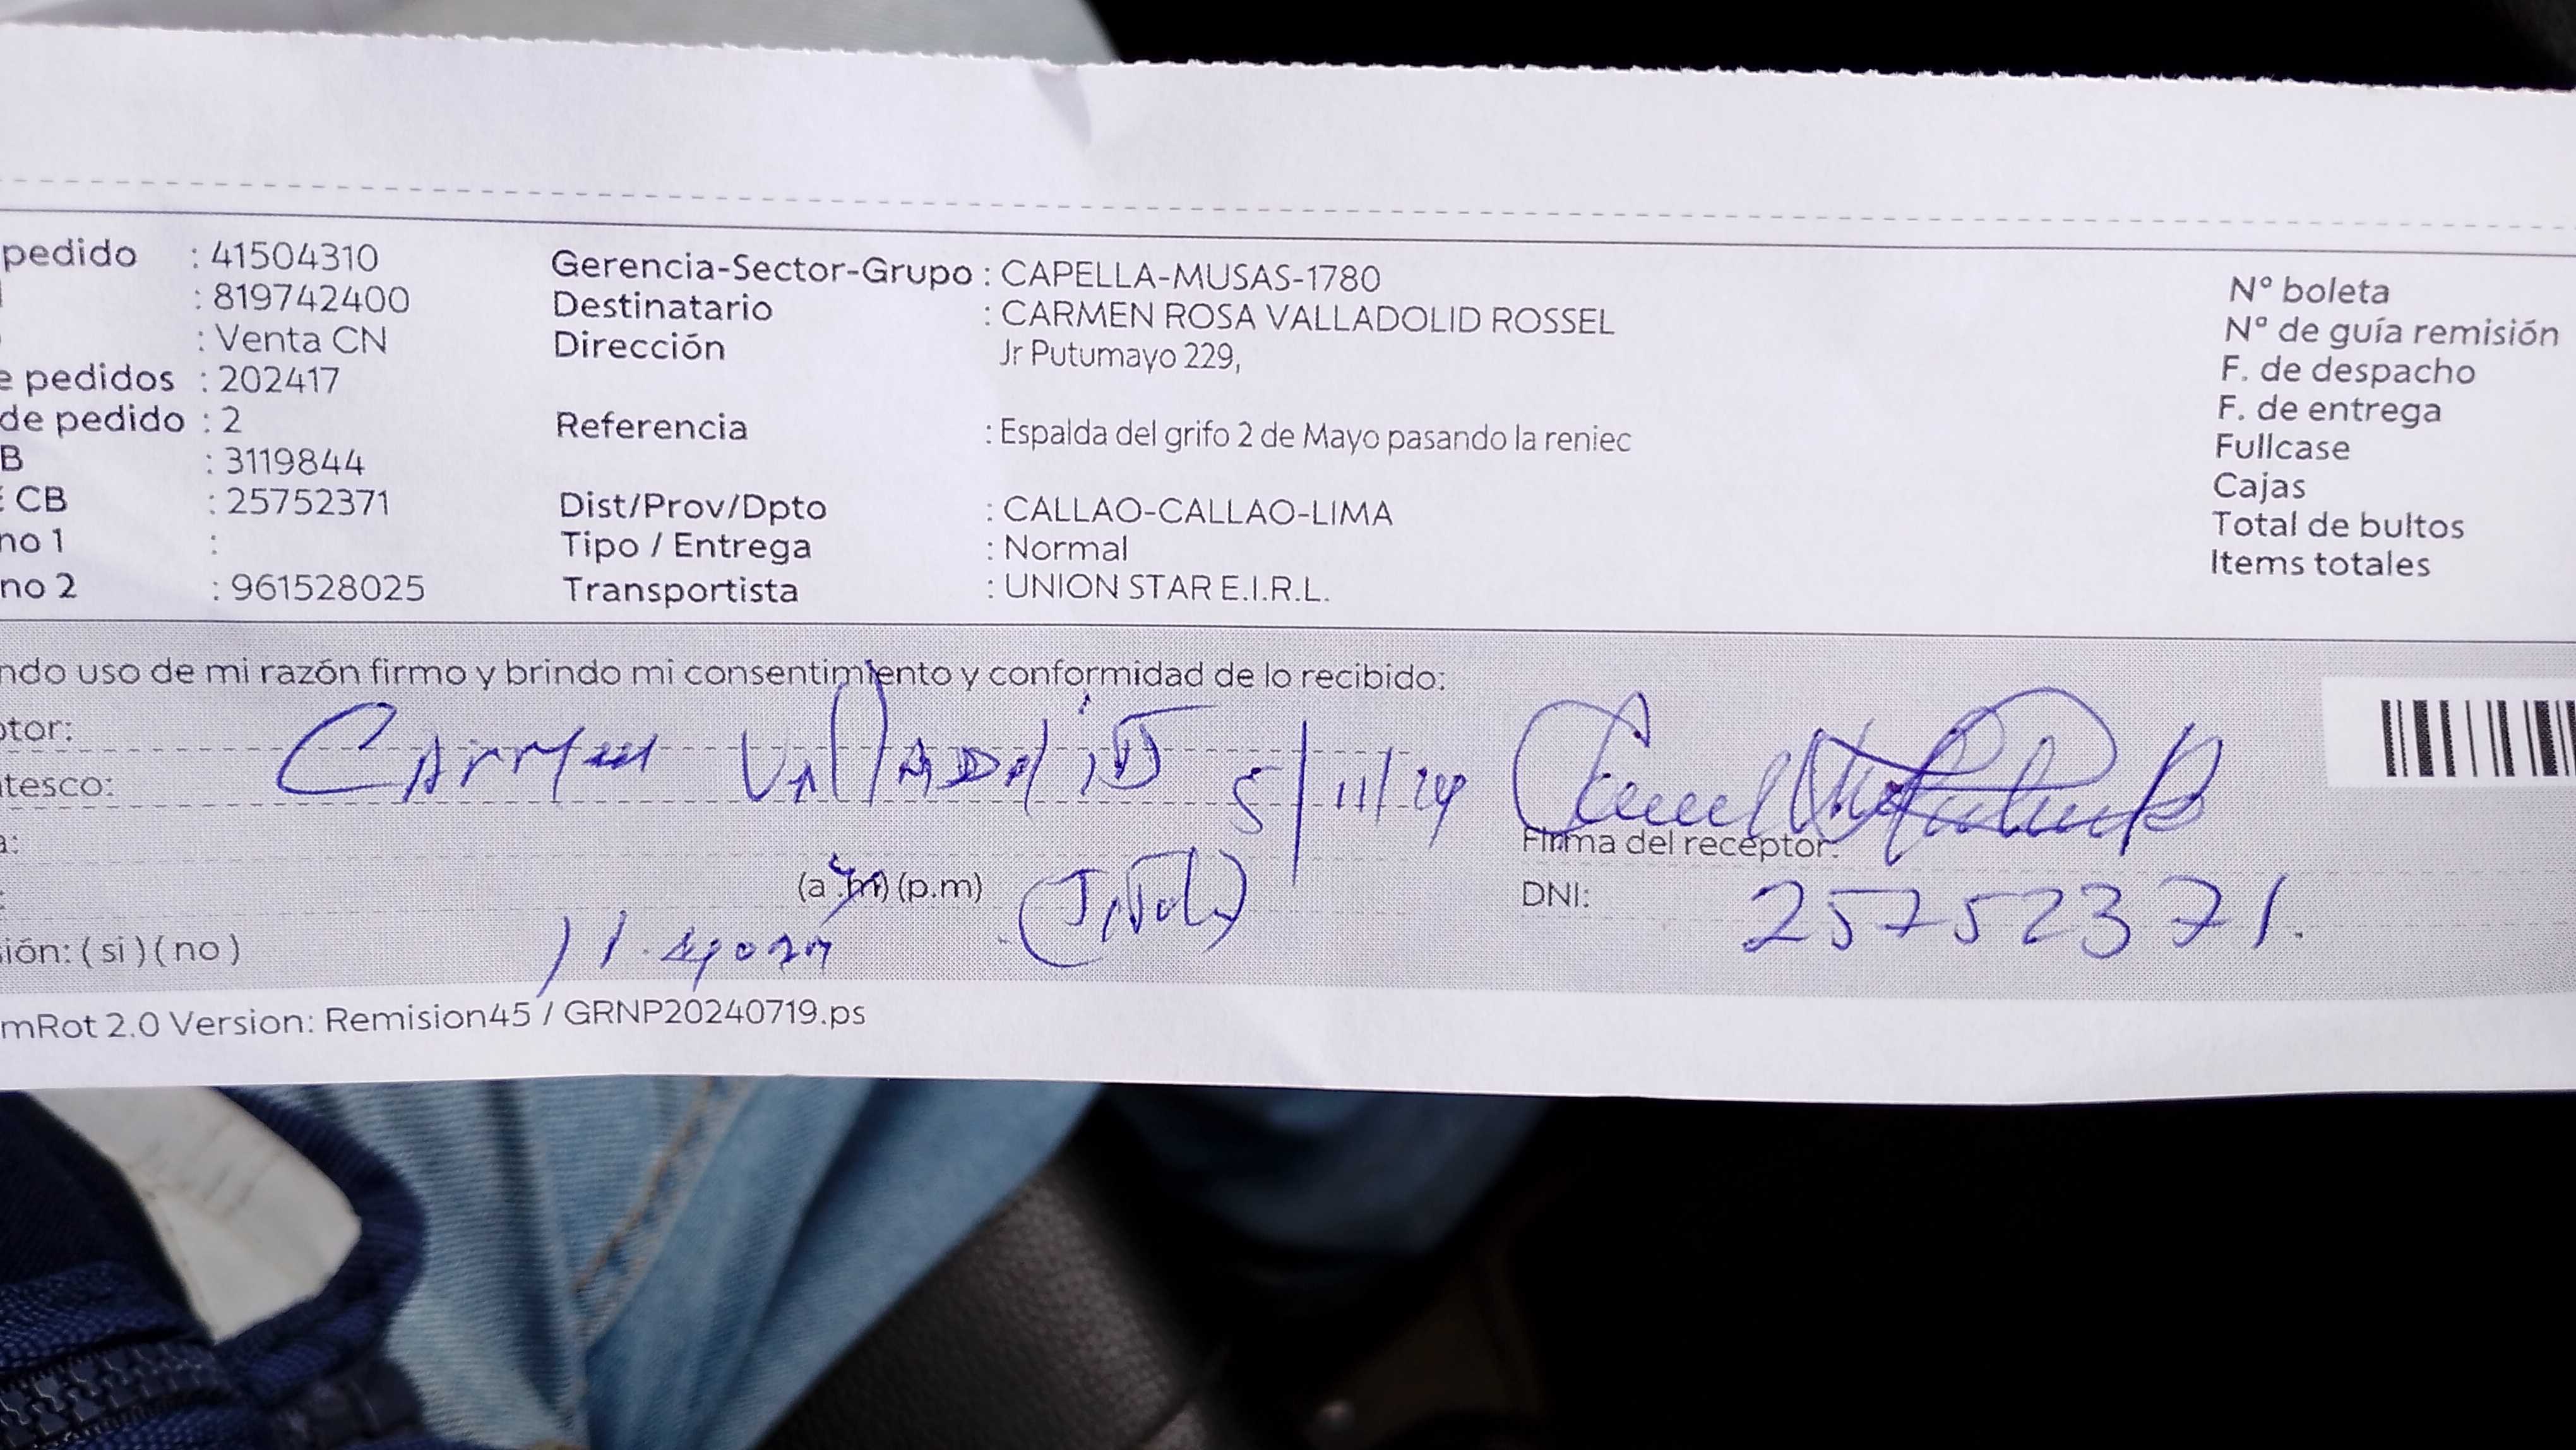 pedido : 41504310
: 819742400
: Venta CN
e pedidos : 202417
de pedido : 2
B : 3119844
CB : 25752371
no 1 :
no 2 : 961528025
Gerencia-Sector-Grupo : CAPELLA-MUSAS-1780
Destinatario : CARMEN ROSA VALLADOLID ROSSEL
Dirección Jr Putumayo 229,
Referencia : Espalda del grifo 2 de Mayo pasando la reniec
Dist/Prov/Dpto : CALLAO-CALLAO-LIMA
Tipo / Entrega : Normal
Transportista : UNION STAR E.I.R.L.
N° boleta
N° de guía remisión
F. de despacho
F. de entrega
Fullcase
Cajas
Total de bultos
Items totales
ndo uso de mi razón firmo y brindo mi consentimiento y conformidad de lo recibido:
ptor: Carmen Valladolid 5/11/24
tesco:
a:
Firma del receptor:
(a.m) (p.m)
DNI: 25752371.
sión: ( si ) ( no )
mRot 2.0 Version: Remision45 / GRNP20240719.ps